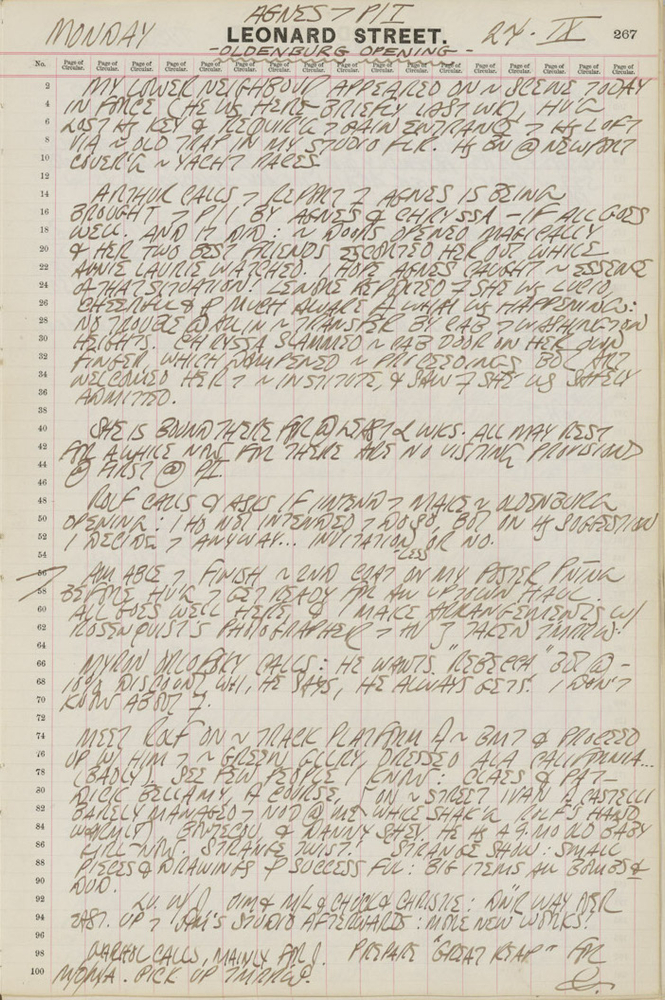 AGNES > P/I
MONDAY LEONARD STREET. 24 · IX 267
- OLDENBURG OPENING -
No. Page of Circular. Page of Circular. Page of Circular. Page of Circular. Page of Circular. Page of Circular. Page of Circular. Page of Circular. Page of Circular. Page of Circular. Page of Circular. Page of Circular. Page of Circular. Page of Circular. Page of Circular. Page of Circular. Page of Circular.
2 MY LOWER NEIGHBOUR APPEARED ON ~ SCENE TODAY
4 IN FORCE (HE WS HERE BRIEFLY LAST WK), HVG
6 LOST HS KEY & REQUIRG > GAIN ENTRANCE > HS LOFT
8 VIA ~ OLD TRAP IN MY STUDIO FLR. HS BN @ NEWPORT
10 COVER'G ~ YACHT RACES.
12
14 ARTHUR CALLS > REPORT T AGNES IS BEING
16 BROUGHT > P/I BY AGNES & CHRYSSA - IF ALL GOES
18 WELL. AND IT DID: ~ DOORS OPENED MAGICALLY
20 & HER TWO BEST FRIENDS ESCORTED HER OUT WHILE
22 ANNIE LAURIE WATCHED. I HOPE AGNES CAUGHT ~ ESSENCE
24 OF THAT SITUATION! LENORE REPORTED T SHE WS LUCID,
26 CHEERFUL & MUCH AWARE OF WHAT WS HAPPENING:
28 NO TROUBLE @ ALL IN ~ TRANSFER BY CAB > WASHINGTON
30 HEIGHTS. CHRYSSA SLAMMED ~ CAB DOOR ON HER OWN
32 FINGER, WHICH DAMPENED ~ PROCEEDINGS BUT ART
34 WELCOMED HER > ~ INSTITUTE, & SAW T SHE WS SAFELY
36 ADMITTED.
38
40 SHE IS BOUND THERE FOR @ LEAST 2 WKS. ALL MAY REST
42 FOR AWHILE NOW FOR THERE ARE NO VISITING PROVISIONS
44 @ FIRST @ P/I.
46
48 ROLF CALLS & ASKS IF I INTEND > MAKE ~ OLDENBURG
50 OPENING: I HD NOT INTENDED > DO SO, BUT ON HS SUGGESTION
52 I DECIDE > ANYWAY... INVITATIONLESS OR NO.
54
56 AM ABLE > FINISH ~ 2ND COAT ON MY POSTER PNTNG
58 BEFORE HVG > GET READY FOR AN UPTOWN HAUL.
60 ALL GOES WELL HERE, & I MAKE ARRANGEMENTS W/
62 ROSENQUIST'S PHOTOGRAPHER > TAKEN TMRRW.
64
66 MYRON ORLOFSKY CALLS: HE WANTS "REBECCA" BUT @ -
68 10% DISCOUNT WH, HE SAYS, HE ALWAYS GETS. I DON'T
70 KNOW ABOUT T.
72
74 MEET ROLF ON ~ TRACK PLATFORM OF ~ BMT & PROCEED
76 UP W/ HIM > ~ GREEN GLLRY DRESSED ALA CALIFORNIA...
78 (BADLY). SEE FEW PEOPLE I KNOW: CLAES & PAT -
80 DICK BELLAMY, OF COURSE, (ON ~ STREET IVAN OF CASTELLI
82 BARELY MANAGED > NOD @ ME WHILE SHAK'G ROLF'S HAND
84 WARMLY) BONTECOU, & DANNY SHEY. HE HS A 9 MO OLD BABY
86 GIRL NOW. STRANGE TWIST. STRANGE SHOW: SMALL
88 PIECES & DRAWINGS SUCCESSFUL: BIG ITEMS ALL BOMBS &
90 DUD.
92 LV. W/ J. DIM & M/L & CHUCK & CHRISTIE: DN'R WAY OVER
94 EAST. UP > DIM'S STUDIO AFTERWARDS: MORE NEW WORKS!
96
98 WARHOL CALLS, MAINLY FOR J. PREPARE "GREAT REAP" FOR
100 MOMA. PICK UP TMRRW.